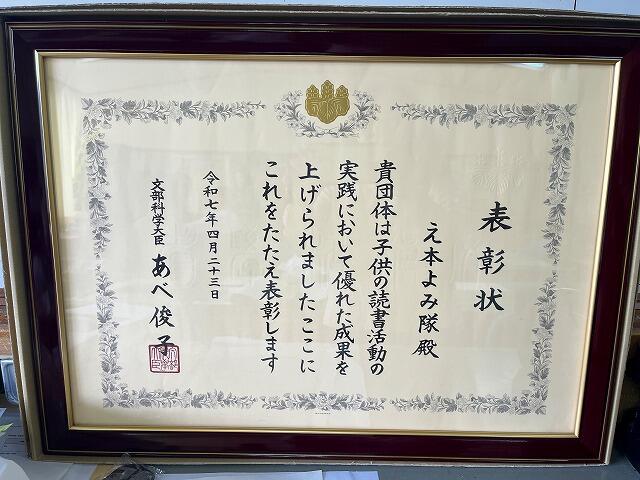 表彰状
え本よみ隊殿
貴団体は子供の読書活動の
実践において優れた成果を
上げられましたここに
これをたたえ表彰します
令和七年四月二十三日
文部科学大臣 あべ俊子